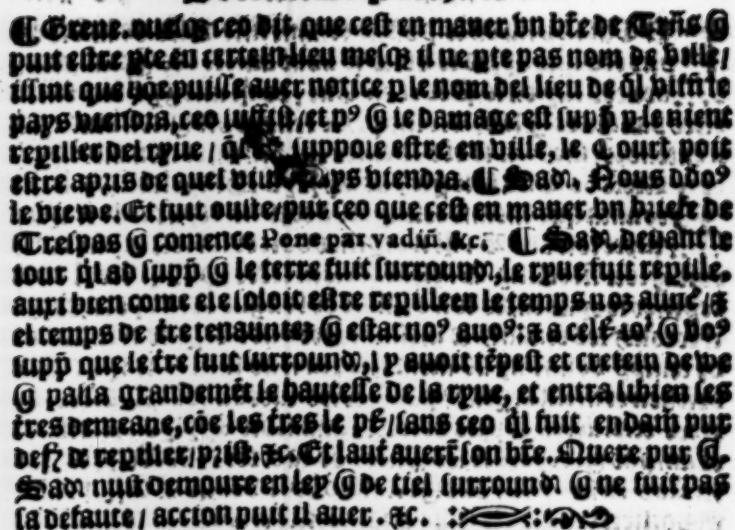 ¶ Grene. ouesq; ceo dit, que cest en maner vn bře de Trñs q̃
puit estre pte en certein lieu mesq; il ne pte pas nom de ville/
issint que puisse auer notice p le nom del lieu de q̃l visñ le
pays viendra, ceo suffist/ et pꝰ q̃ le damage est supp̃ p le nient
repiller del ryue / suppose estre en ville, le Court poit
estre apris de quel viendra. ¶ Sad̃. Nous
le viewe. Et fuit ouste/ pur ceo que cest en maner vn briefe de
Trespas q̃ comence Pone par vadiũ. &c. ¶ Sad̃. deuant le
iour q̃l ad supp̃ q̃ le terre fuit surround̃, le ryue fuit repille.
auxi bien come ele soloit estre repille en le temps noz aunc̃/ &
el temps de t̃re tenauntez q̃ estat noꝰ auoꝰ: & a cel q̃ voꝰ
supp̃ que le t̃re fuit surround̃, i y auoit tẽpest et cretein de we
q̃ passa grandemẽt le hautesse de la ryue, et entra sibien les
t̃res demeane, cõe les t̃res le pł/ sans ceo q̃l fuit endam̃ pur
def̃ de repiller/ prist, &c. Et lauť auerť son bře. Quere pur q̃.
Sad̃ nust demoure en ley q̃ de tiel surround̃ q̃ ne fuit pas
sa defaute/ accion puit il auer. &c.